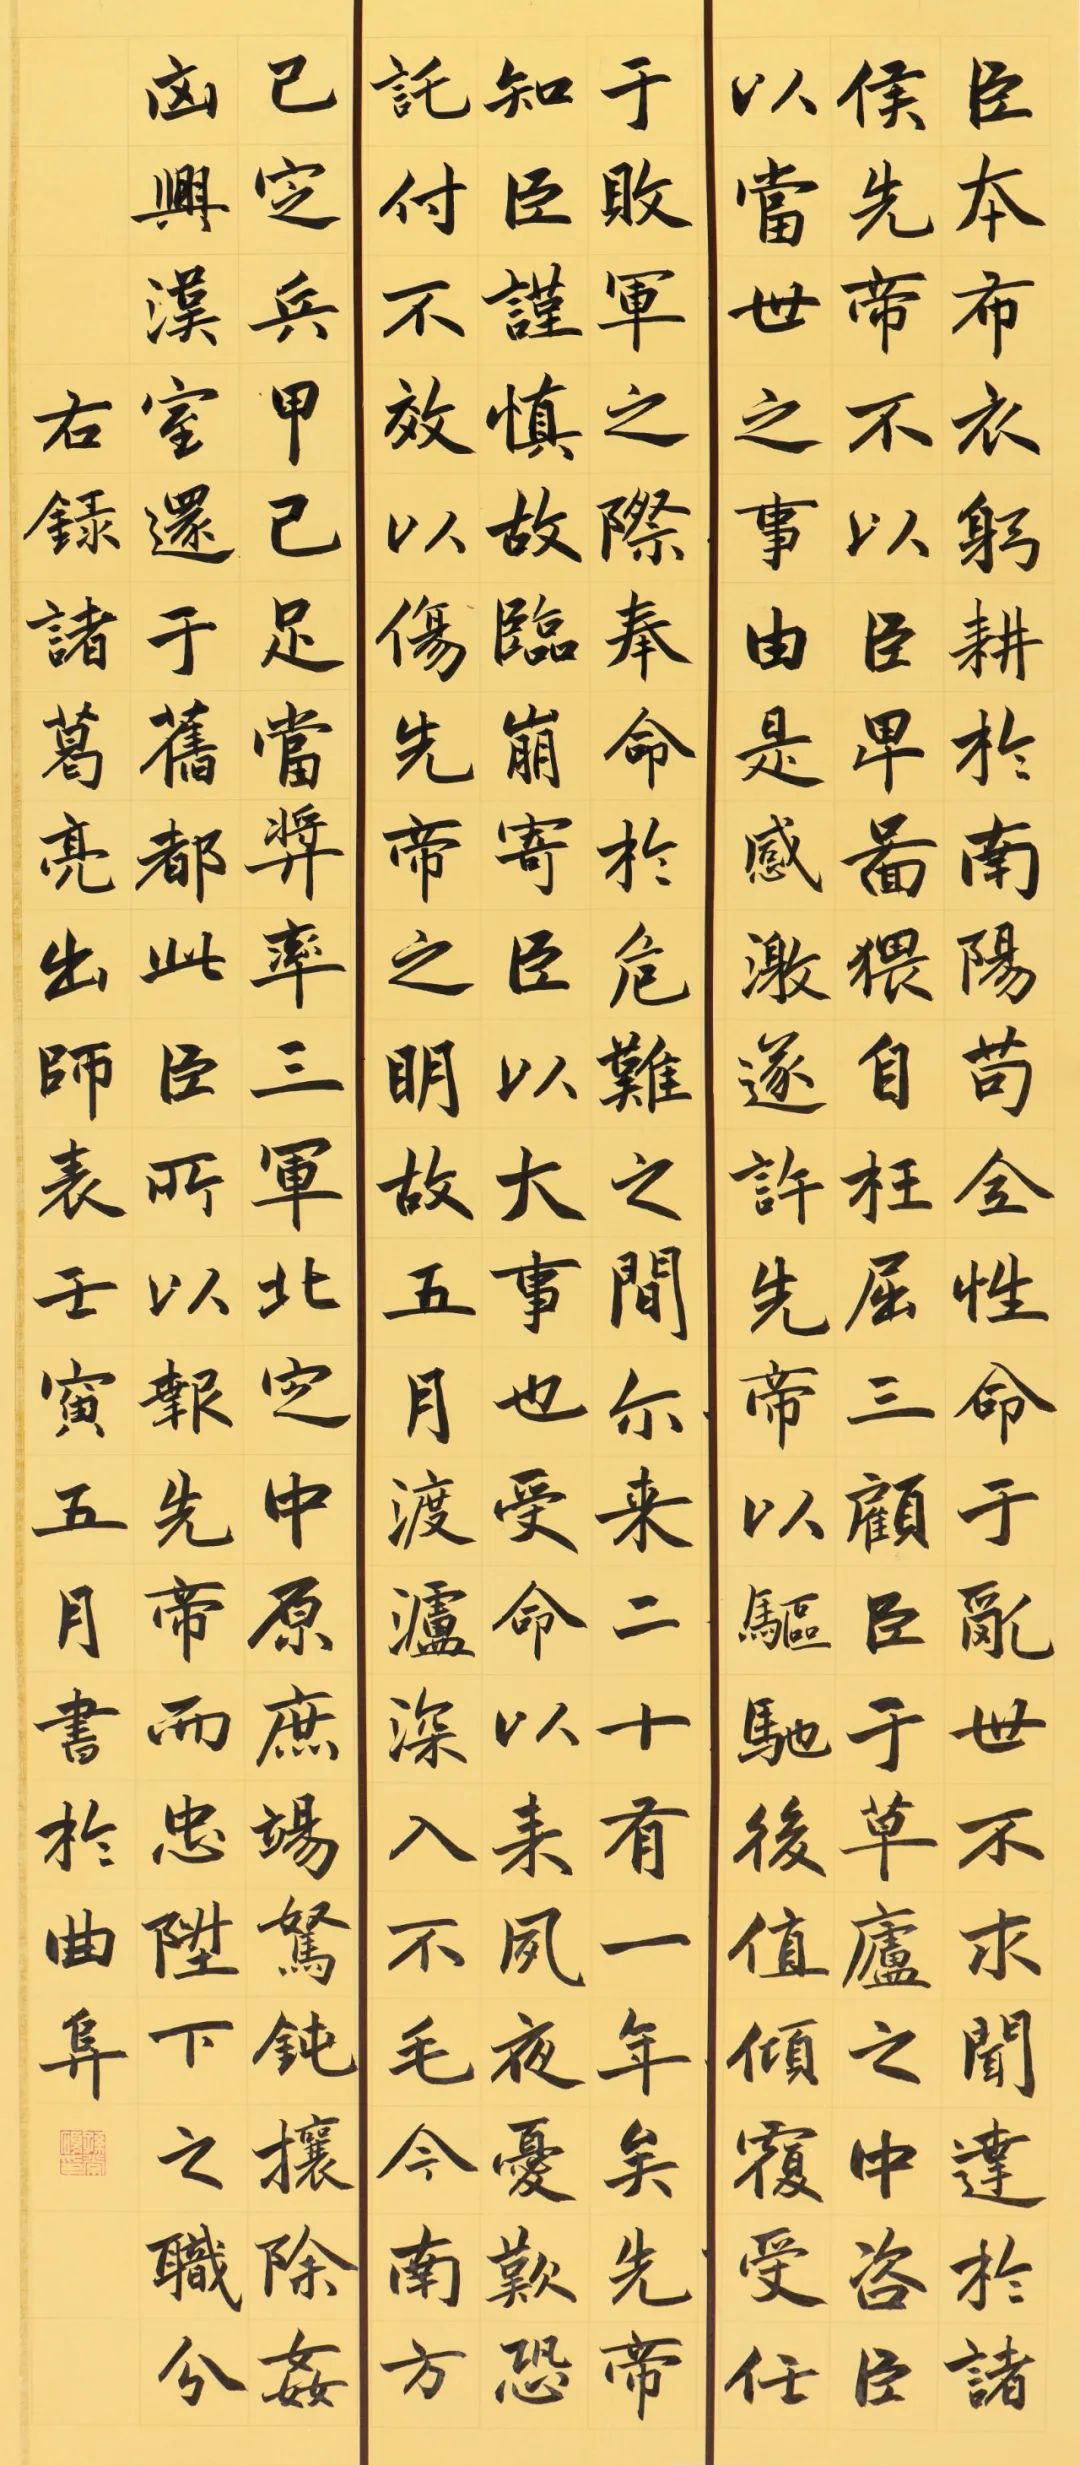 臣本布衣躬耕於南陽苟全性命于亂世不求聞達於諸
侯先帝不以臣卑啚猥自枉屈三顧臣于草廬之中咨臣
以當世之事由是感激遂許先帝以驅馳後值傾覆受任
于敗軍之際奉命於危難之間尓来二十有一年矣先帝
知臣謹慎故臨崩寄臣以大事也受命以来夙夜憂歎恐
託付不效以傷先帝之明故五月渡瀘深入不毛今南方
已定兵甲已足當奨率三軍北定中原庶竭駑鈍攘除姦
凶興漢室還于舊都此臣所以報先帝而忠陛下之職分
右録諸葛亮出師表壬寅五月書於曲阜